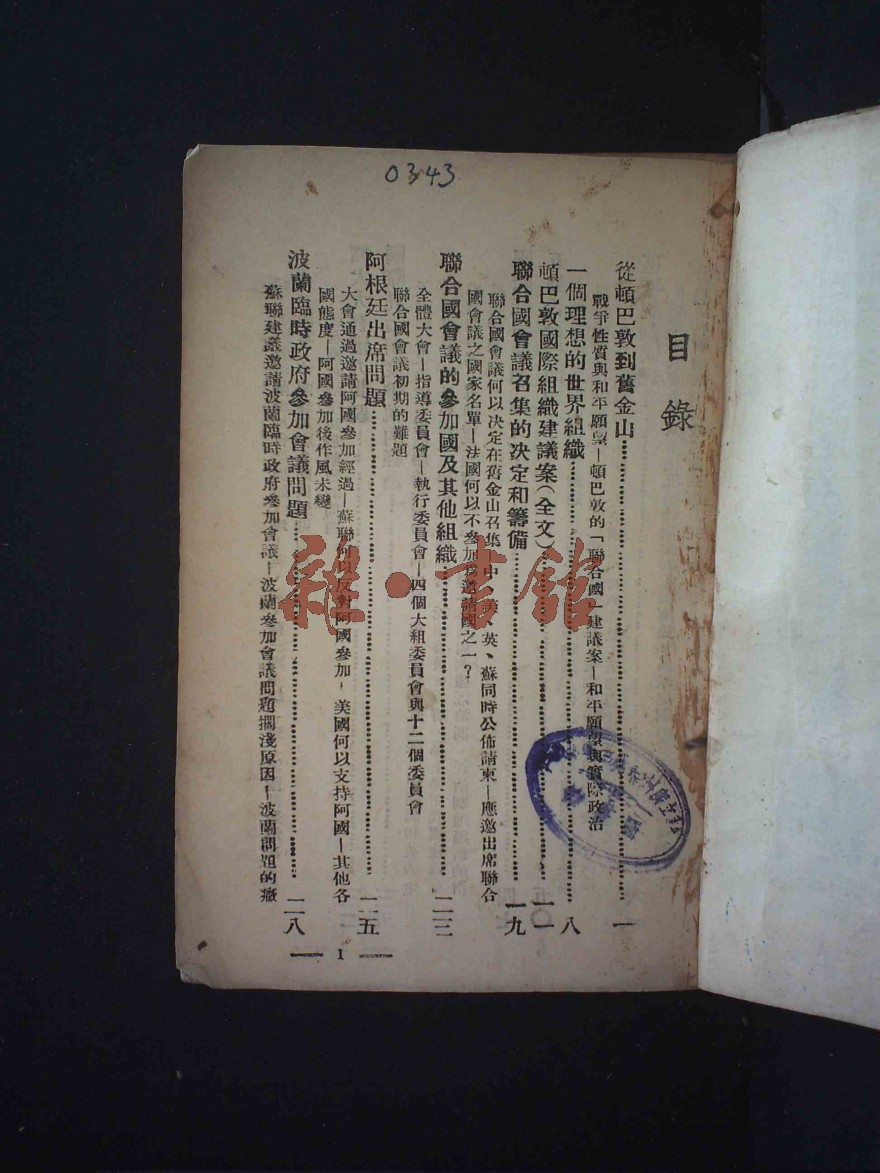 0343
目錄
從頓巴敦到舊金山……一
戰爭性質與和平願望—頓巴敦的「聯合國」建議案—和平願望與實際政治
一個理想的世界組織……八
頓巴敦國際組織建議案(全文)……一一
聯合國會議召集的決定和籌備……一九
聯合國會議何以決定在舊金山召集—中、美、英、蘇同時公佈請柬—應邀出席聯合
國會議之國家名單—法國何以不參加為邀請國之一?
聯合國會議的參加國及其他組織……二三
全體大會—指導委員會—執行委員會—四個大組委員會與十二個委員會
聯合國會議初期的難題
阿根廷出席問題……二五
大會通過邀請阿國參加經過—蘇聯何以反對阿國參加,美國何以支持阿國—其他各
國態度—阿國參加後作風未變
波蘭臨時政府參加會議問題……二八
蘇聯建議邀請波蘭臨時政府參加會議—波蘭參加會議問題擱淺原因—波蘭問題的癥
1
雜·書館